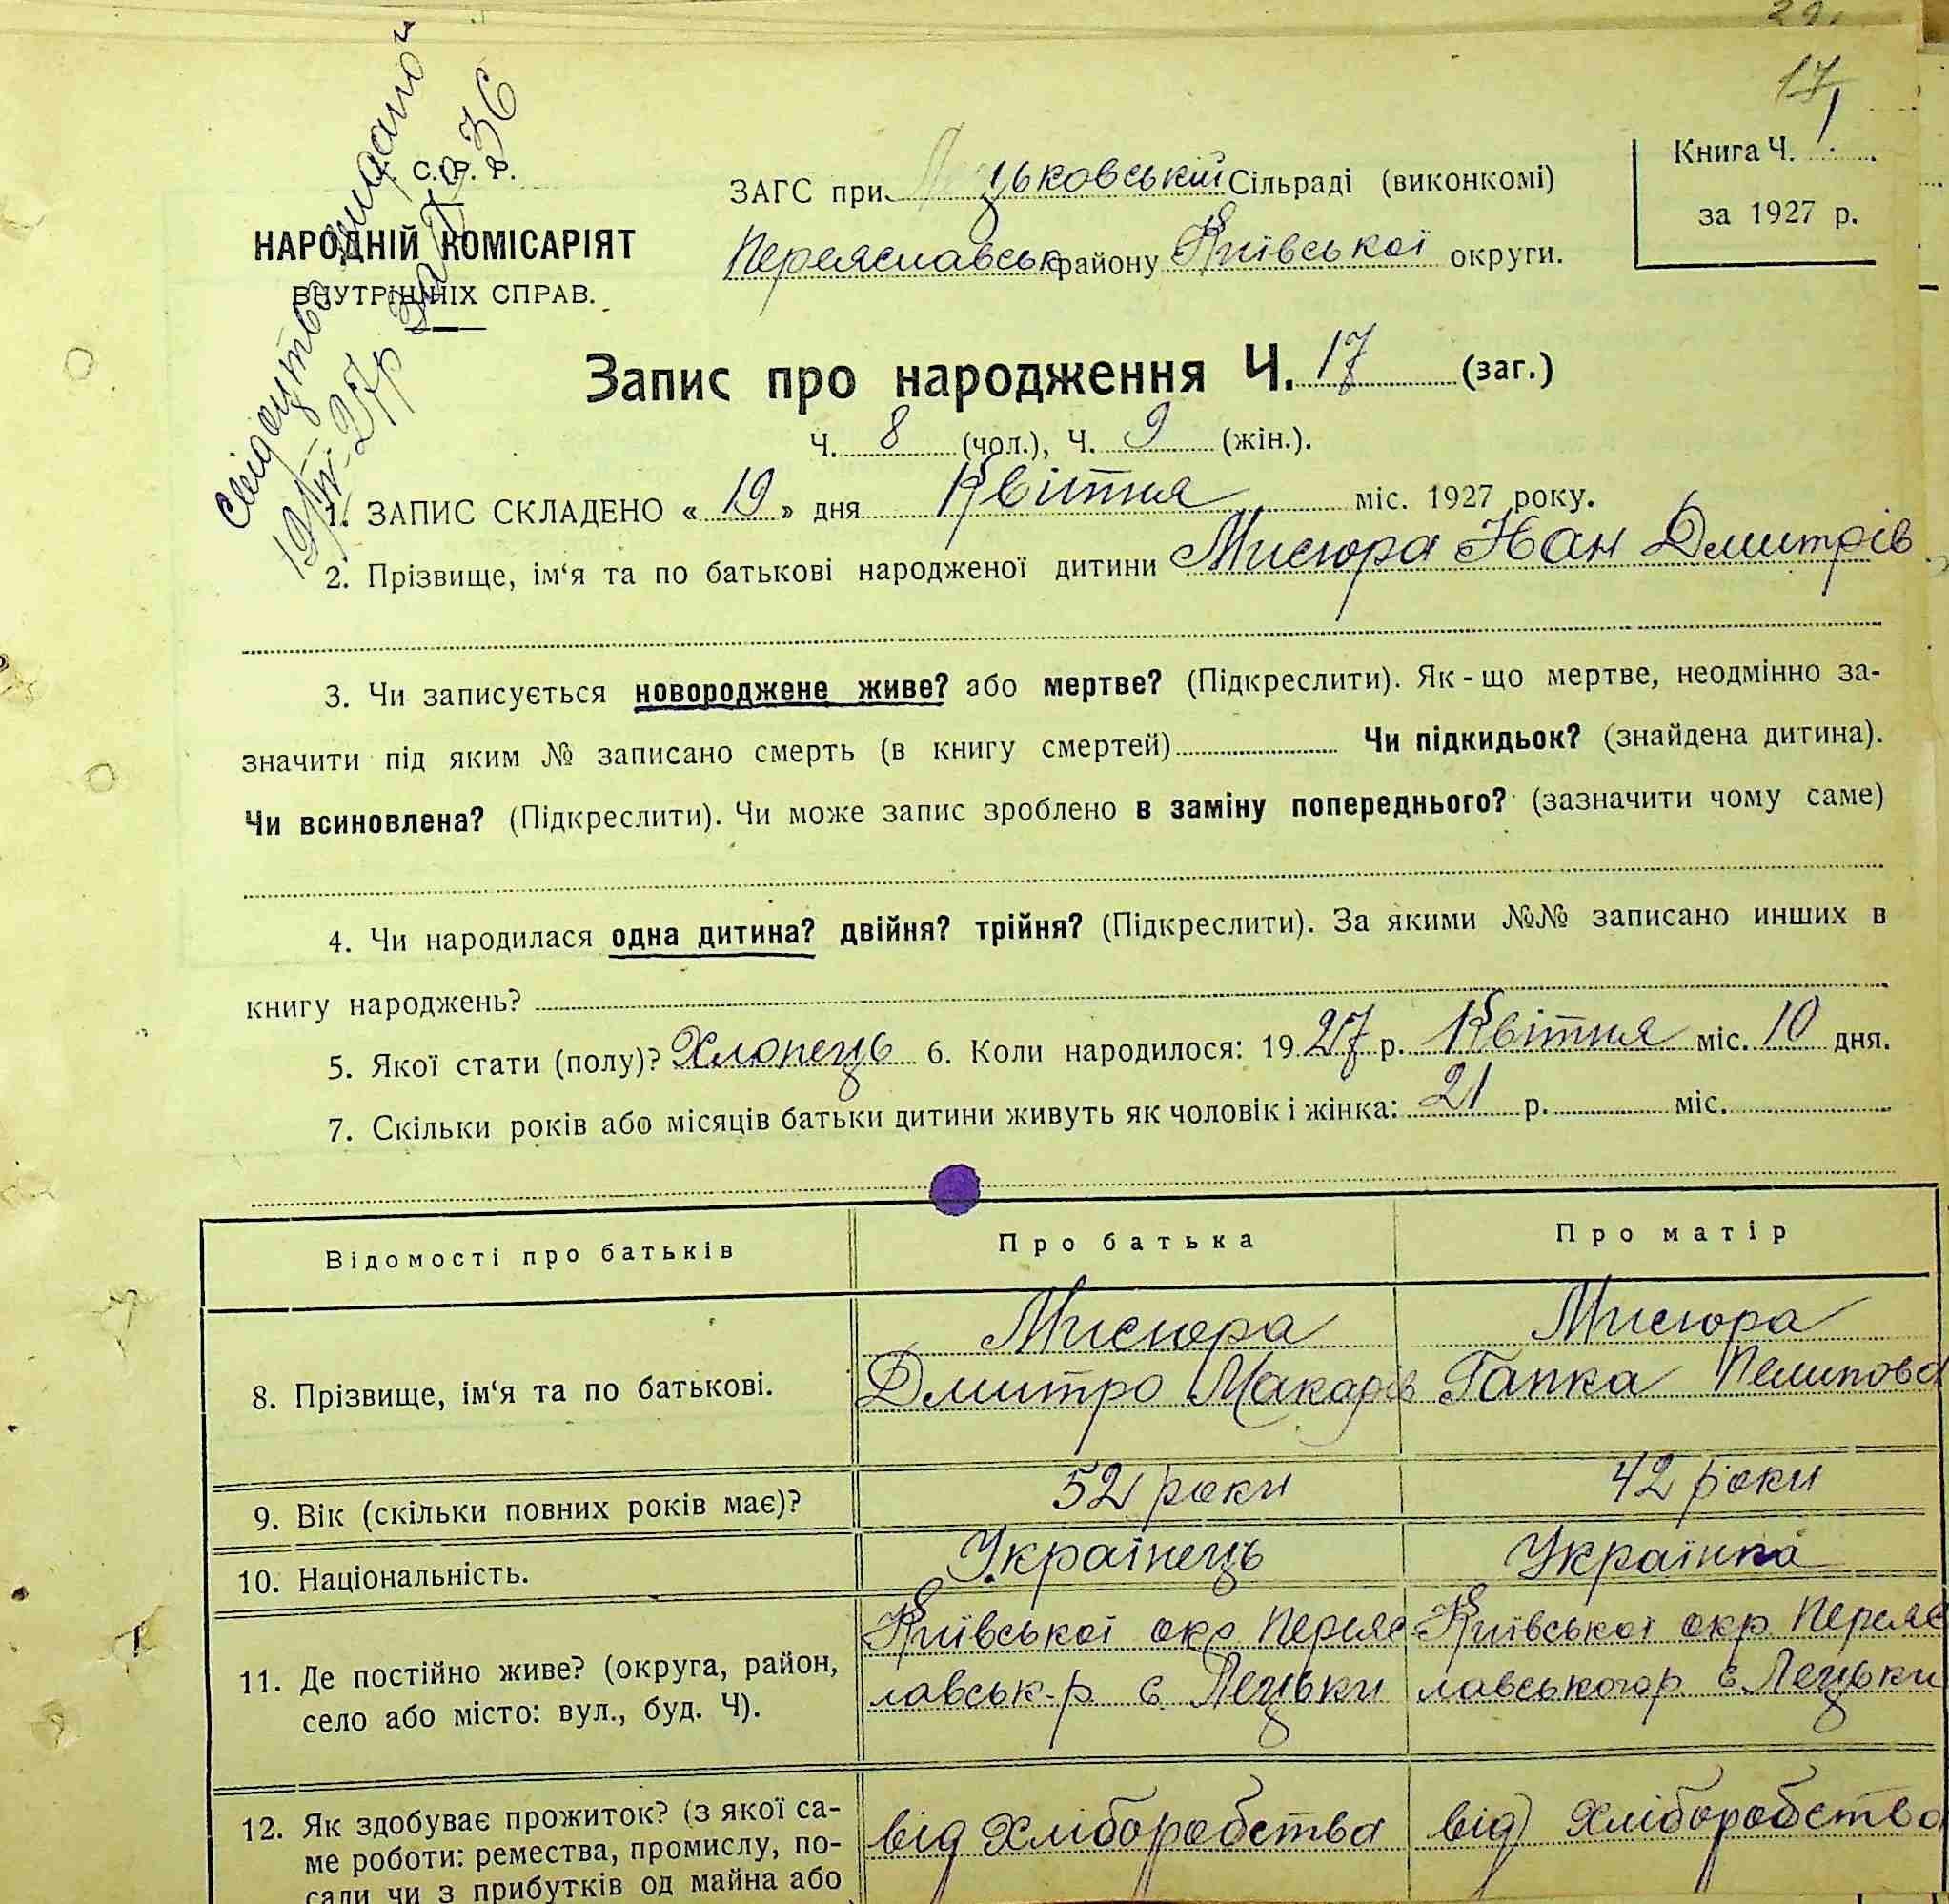 29.
17
Свідоцтво видано
19/IV-27р за № 36
С. Р. Р.
НАРОДНІЙ КОМІСАРІЯТ
ВНУТРІШНІХ СПРАВ.
ЗАГС при Лецьковській Сільраді (виконкомі)
Переяславськ району Київської округи.
Книга Ч. 1.
за 1927 р.
Запис про народження Ч. 17 (заг.)
Ч. 8 (чол.), Ч. 9 (жін.).
1. ЗАПИС СКЛАДЕНО « 19 » дня Квітня міс. 1927 року.
2. Прізвище, ім‘я та по батькові народженої дитини Мисюра Іван Дмитрів
3. Чи записується новороджене живе? або мертве? (Підкреслити). Як-що мертве, неодмінно за-
значити під яким № записано смерть (в книгу смертей) Чи підкидьок? (знайдена дитина).
Чи всиновлена? (Підкреслити). Чи може запис зроблено в заміну попереднього? (зазначити чому саме)
4. Чи народилася одна дитина? двійня? трійня? (Підкреслити). За якими №№ записано инших в
книгу народжень?
5. Якої стати (полу)? Хлопець 6. Коли народилося: 1927 р. Квітня міс. 10 дня.
7. Скільки років або місяців батьки дитини живуть як чоловік і жінка: 21 р. міс.
Відомості про батьків Про батька Про матір
8. Прізвище, ім‘я та по батькові.
Мисюра
Дмитро Макарів
Мисюра
Гапка Пелипова
9. Вік (скільки повних років має)? 52 роки 42 роки
10. Національність. Українець Українка
11. Де постійно живе? (округа, район,
село або місто: вул., буд. Ч).
Київської окр Переяс
лавськ-р с Лецьки
Київської окр Переяс
лавського р с Лецьки
12. Як здобуває прожиток? (з якої са-
ме роботи: ремества, промислу, по-
сади чи з прибутків од майна або
від хліборобства
від хліборобства